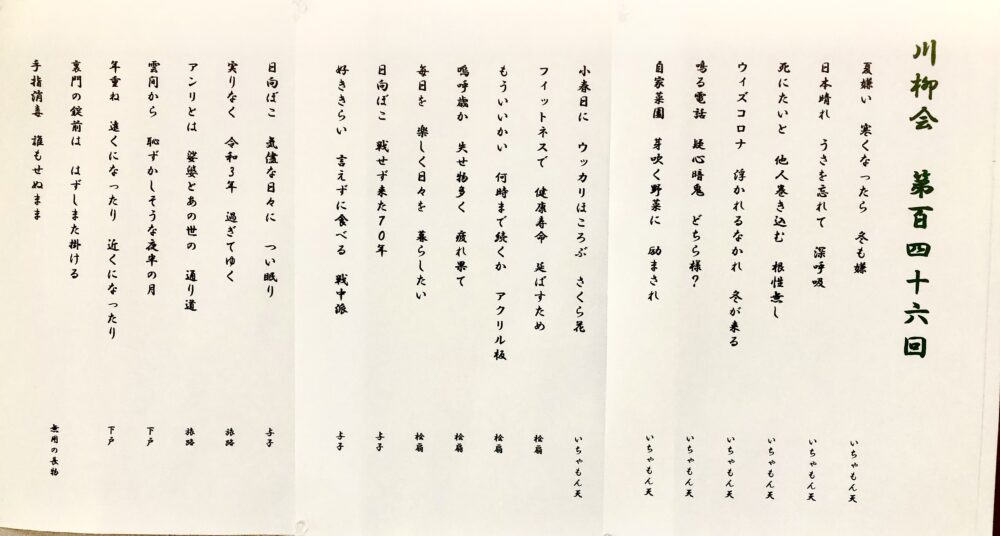 川柳会　第百四十六回
夏嫌い　寒くなったら　冬も嫌
いちゃもん天
日本晴れ　うさを忘れて　深呼吸
いちゃもん天
死にたいと　他人巻き込む　根性無し
いちゃもん天
ウィズコロナ　浮かれるなかれ　冬が来る
いちゃもん天
鳴る電話　疑心暗鬼　どちら様?
いちゃもん天
自家菜園　芽吹く野菜に　励まされ
いちゃもん天
小春日に　ウッカリほころぶ　さくら花
いちゃもん天
フィットネスで　健康寿命　延ばすため
桧扇
もういいかい　何時まで続くか　アクリル板
桧扇
嗚呼歳か　失せ物多く　疲れ果て
桧扇
毎日を　楽しく日々を　暮らしたい
桧扇
日向ぼこ　戦せず来た70年
与子
好ききらい　言えずに食べる　戦中派
与子
日向ぼこ　気儘な日々に　つい眠り
与子
実りなく　令和3年　過ぎてゆく
旅路
アンリとは　娑婆とあの世の　通り道
旅路
雲間から　恥ずかしそうな夜半の月
下戸
年重ね　遠くになったり　近くになったり
下戸
裏門の錠前は　はずしまた掛ける
手指消毒　誰もせぬまま
無用の長物